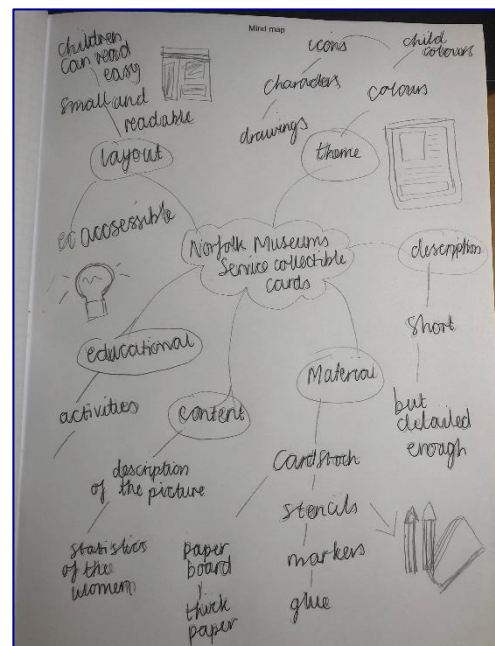 Mind map
children
can read
easy
small and
readable
layout
accessible
icons
child
colours
characters
colours
drawings
theme
Norfolk Museums
Service collectible
cards
description
short
but
detailed
enough
educational
activities
content
description
of the picture
statistics
of the
women
Material
Cardstock
stencils
markers
glue
paper
board
thick
paper